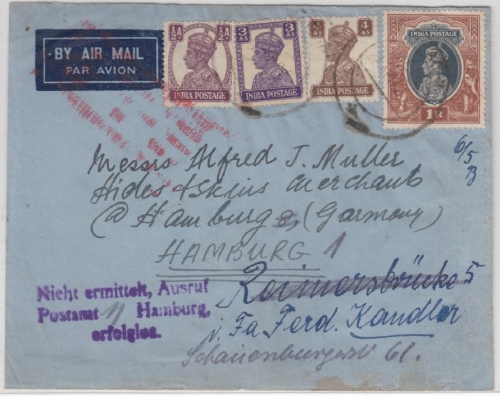 BY AIR MAIL
PAR AVION
½A INDIA POSTAGE ½A
3AS INDIA POSTAGE 3AS
4AS INDIA POSTAGE 4AS
INDIA POSTAGE
1R
6/5
Messrs Alfred J. Muller
Hides & Skins merchants
@ Hamburg (Garmony)
HAMBURG 1
Nicht ermittelt, Ausruf
Postamt 11 Hamburg,
erfolglos.
Reimersbrücke 5
i. Fa Ferd. Kandler
Schauenburgerstr 61.